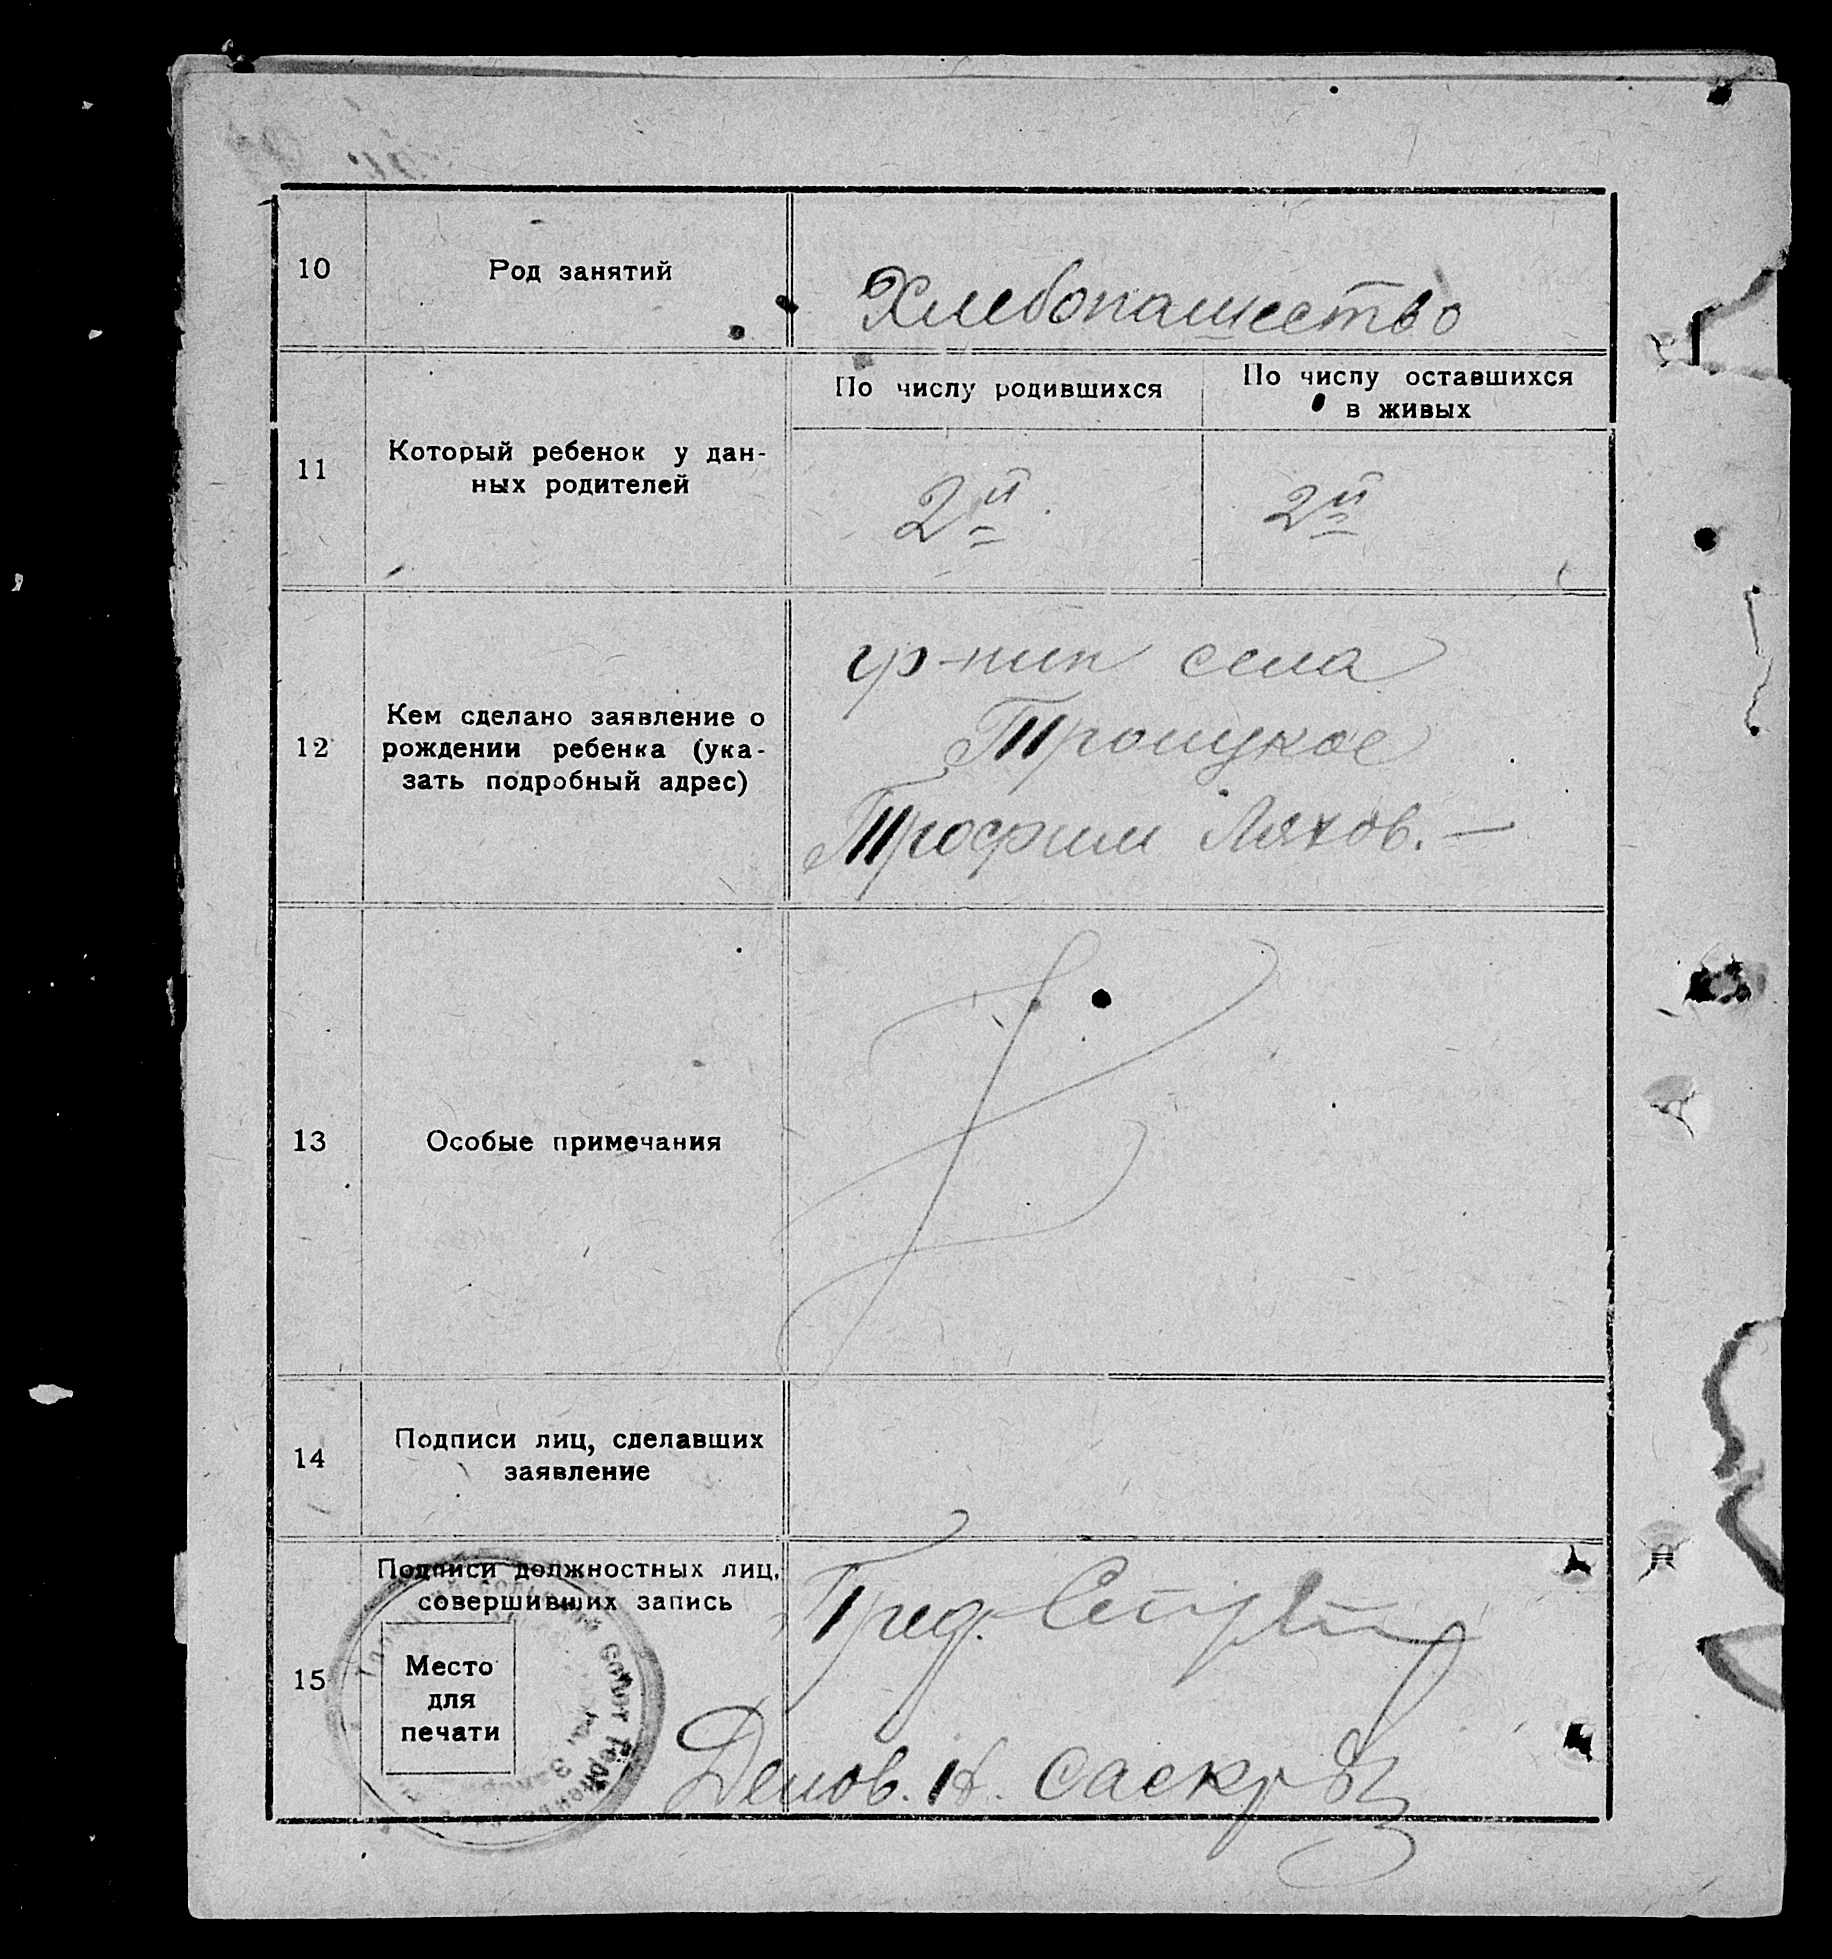 10
Род занятий
Хлебопашество
11
Который ребенок у дан-
ных родителей
По числу родившихся
По числу оставшихся
в живых
2й
2й
12
Кем сделано заявление о
рождении ребенка (ука-
зать подробный адрес)
гр-нин села
Троицкое
Трофим Ляхов. —
13
Особые примечания
14
Подписи лиц, сделавших
заявление
15
Подписи должностных лиц,
совершивших запись
Место
для
печати
Пред.
Делов.